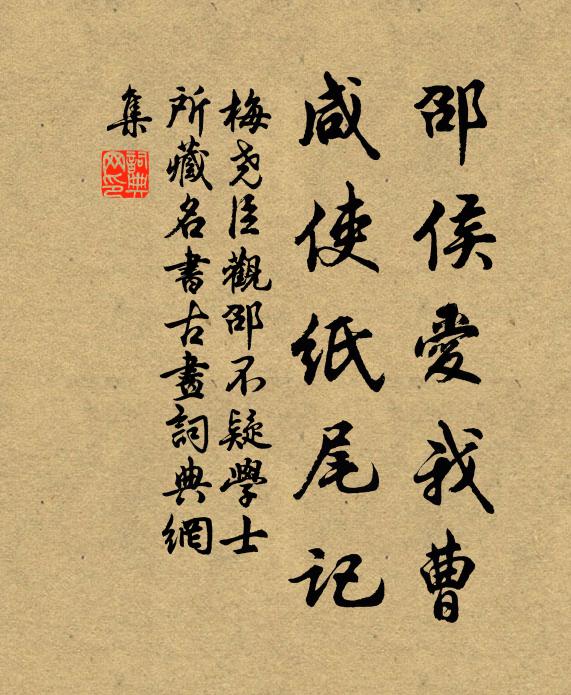 邵侯愛我曹
咸使紙尾記
梅尧臣觀邵不疑學士
所藏名書古畫詞典網
集
詞典
网印